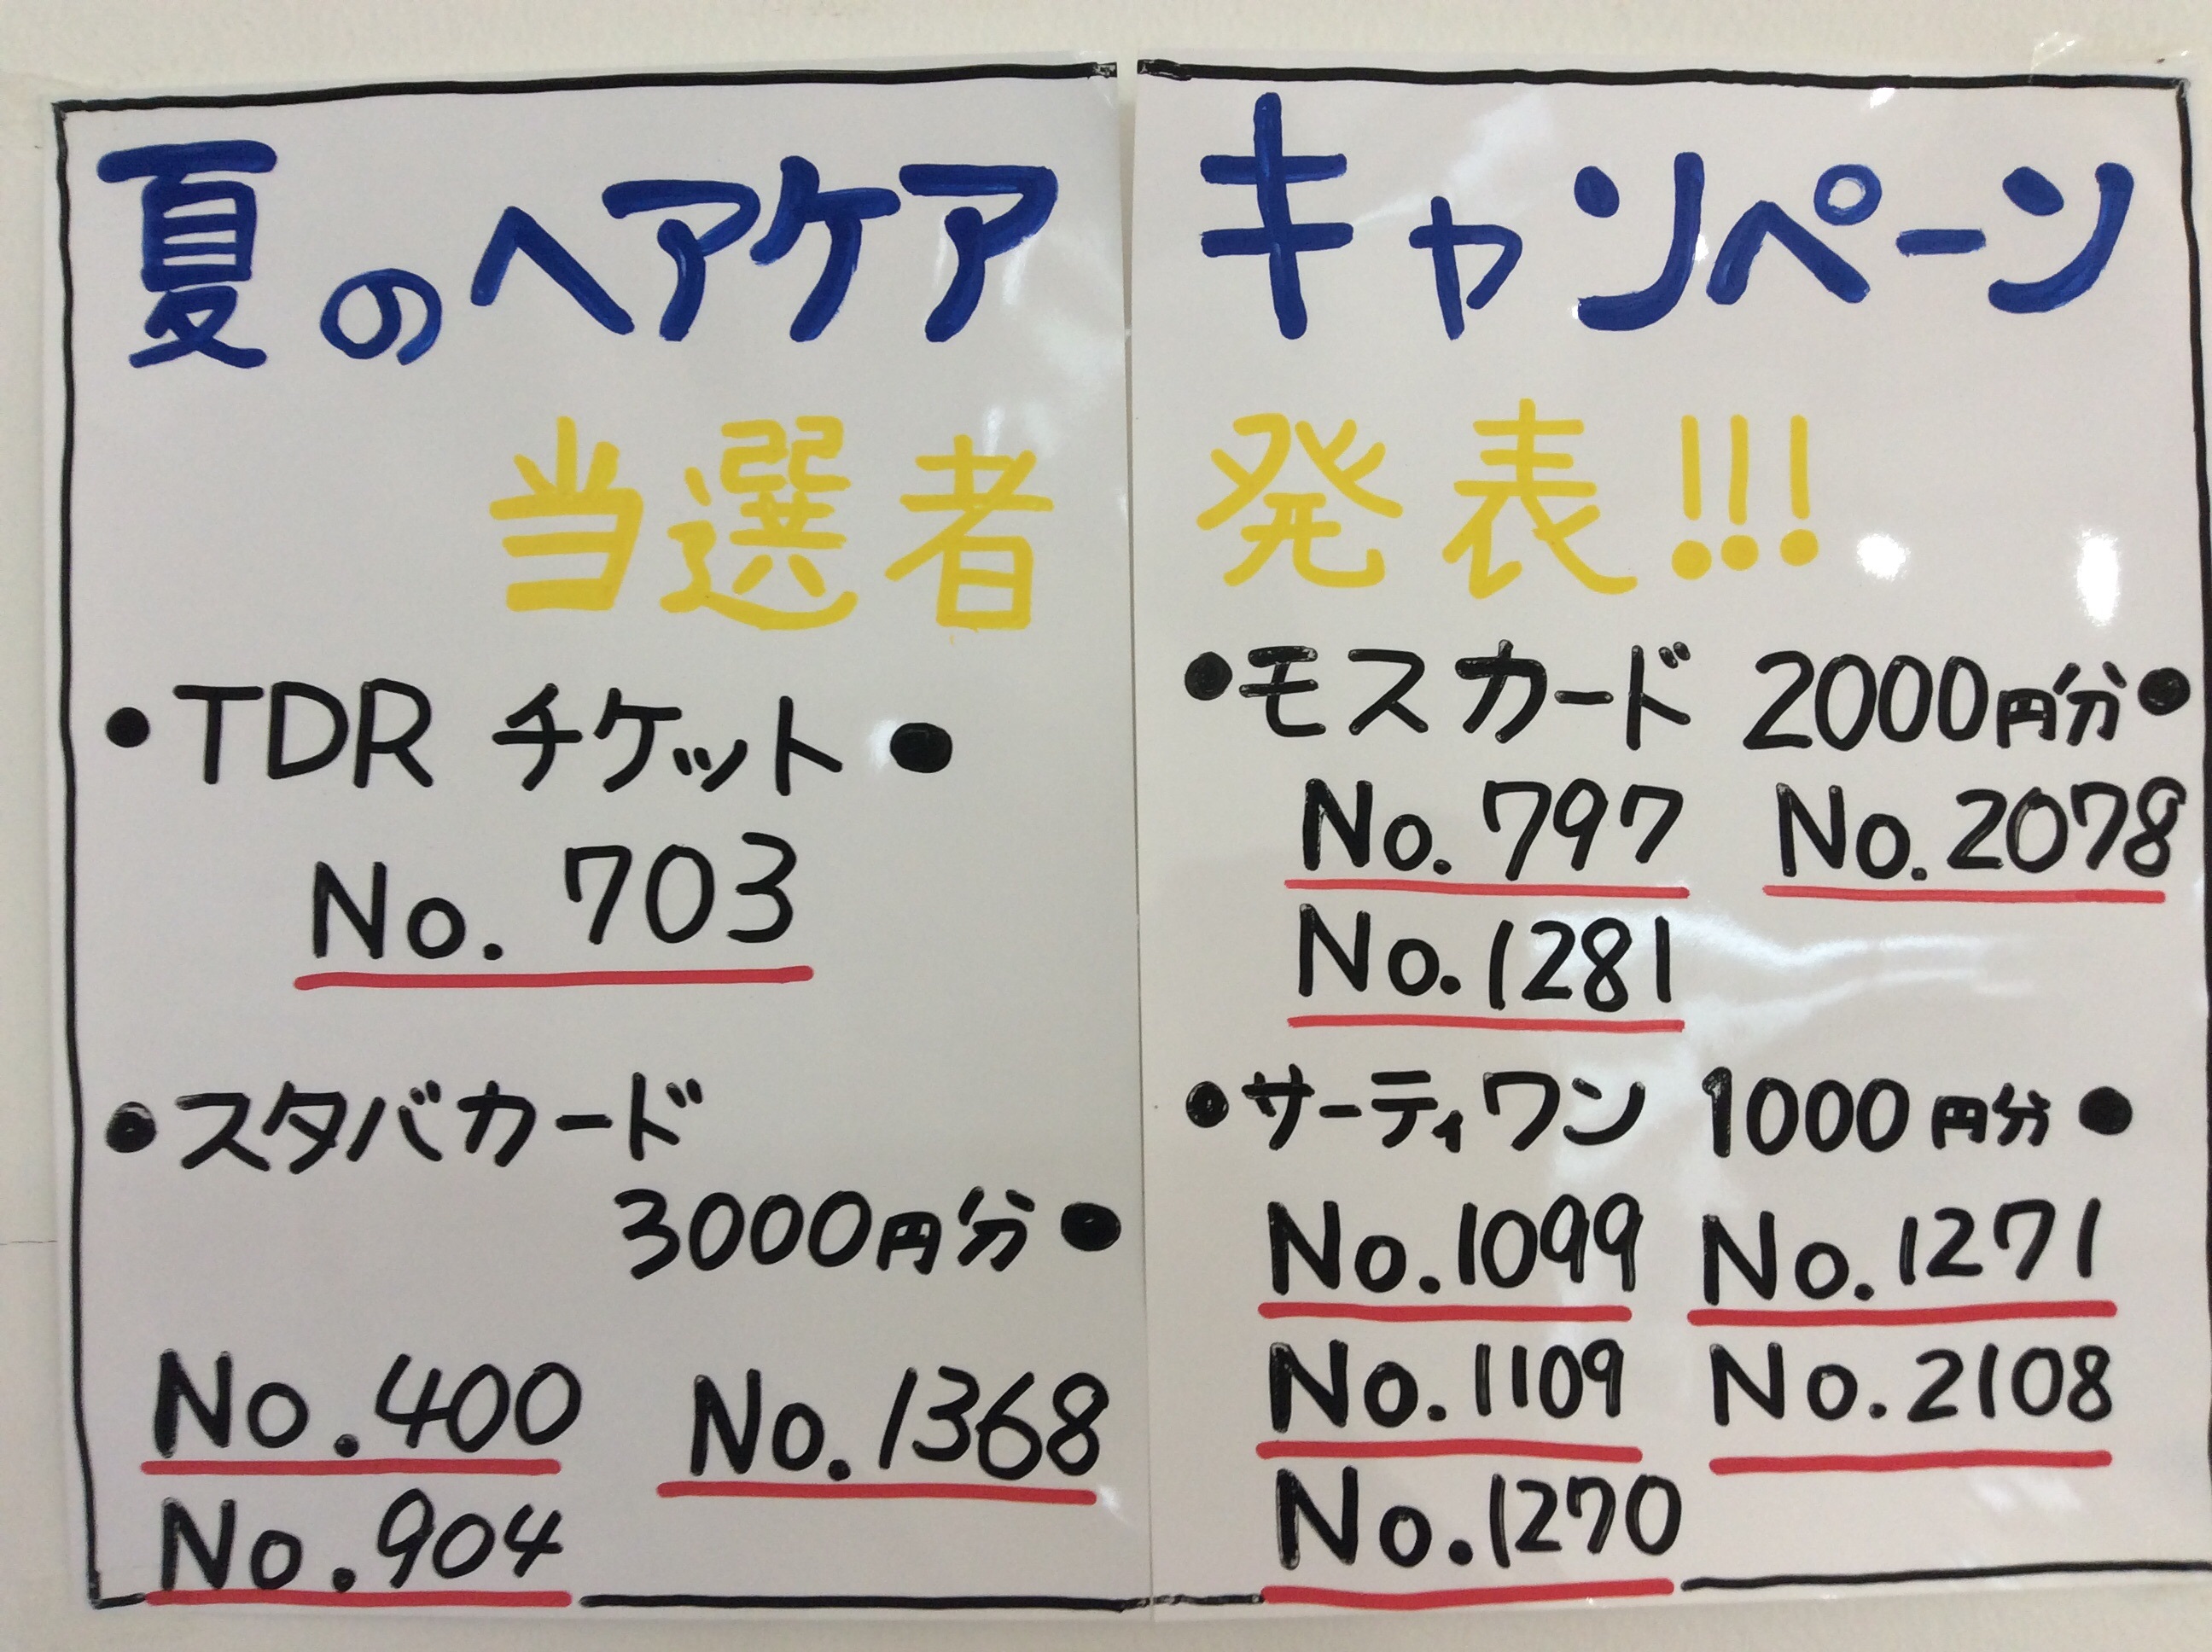 夏のヘアケアキャンペーン
当選者発表!!!
●TDR チケット●
No. 703
●スタバカード
3000円分●
No.400 No.1368
No.904
●モスカード 2000円分●
No.797 No.2078
No.1281
●サーティワン 1000円分●
No.1099 No.1271
No.1109 No.2108
No.1270